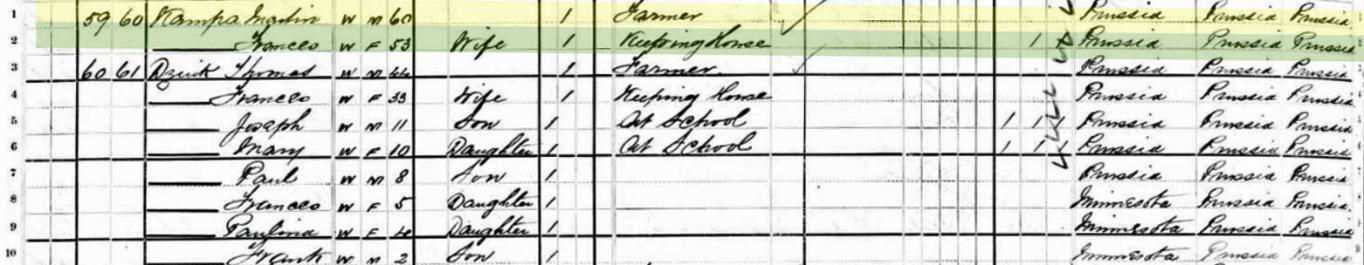 1 59 60 Kampa Martin W M 60 1 Farmer Prussia Prussia Prussia
2 Frances W F 53 Wife 1 Keeping House 1 Prussia Prussia Prussia
3 60 61 Thomas W M 44 1 Farmer Prussia Prussia Prussia
4 Frances W F 33 Wife 1 Keeping House Prussia Prussia Prussia
5 Joseph W M 11 Son 1 At School 1 1 Prussia Prussia Prussia
6 Mary W F 10 Daughter 1 At School 1 1 Prussia Prussia Prussia
7 Paul W M 8 Son 1 Prussia Prussia Prussia
8 Frances W F 5 Daughter 1 Minnesota Prussia Prussia
9 Paulina W F 4 Daughter 1 Minnesota Prussia Prussia
10 Frank W M 2 Son 1 Minnesota Prussia Prussia